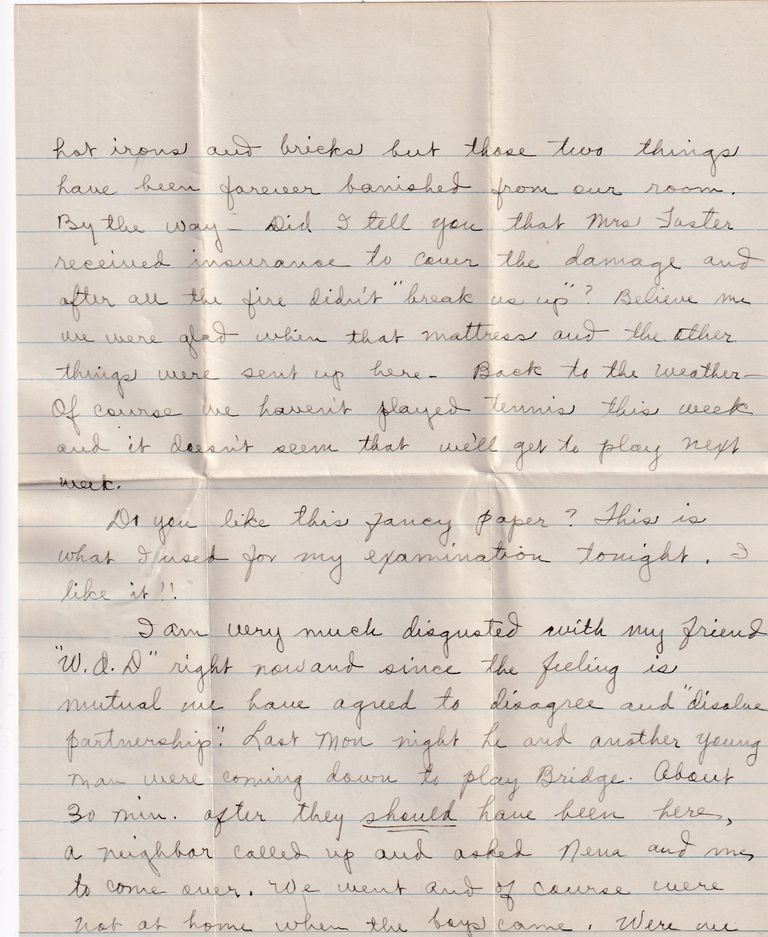 hot irons and bricks but those two things
have been forever banished from our room.
By the way – Did I tell you that Mrs Foster
received insurance to cover the damage and
after all the fire didn't "break us up"? Believe me
we were glad when that mattress and the other
things were sent up here – Back to the weather –
Of course we haven't played tennis this week
and it doesn't seem that we'll get to play next
week.
Do you like this fancy paper? This is
what I used for my examination tonight. I
like it!!
I am very much disgusted with my friend
"W.A.D" right now and since the feeling is
mutual we have agreed to disagree and "disolve
partnership". Last Mon night he and another young
man were coming down to play Bridge. About
30 min. after they should have been here,
a neighbor called up and asked Nena and me
to come over. We went and of course were
not at home when the boys came. Were we